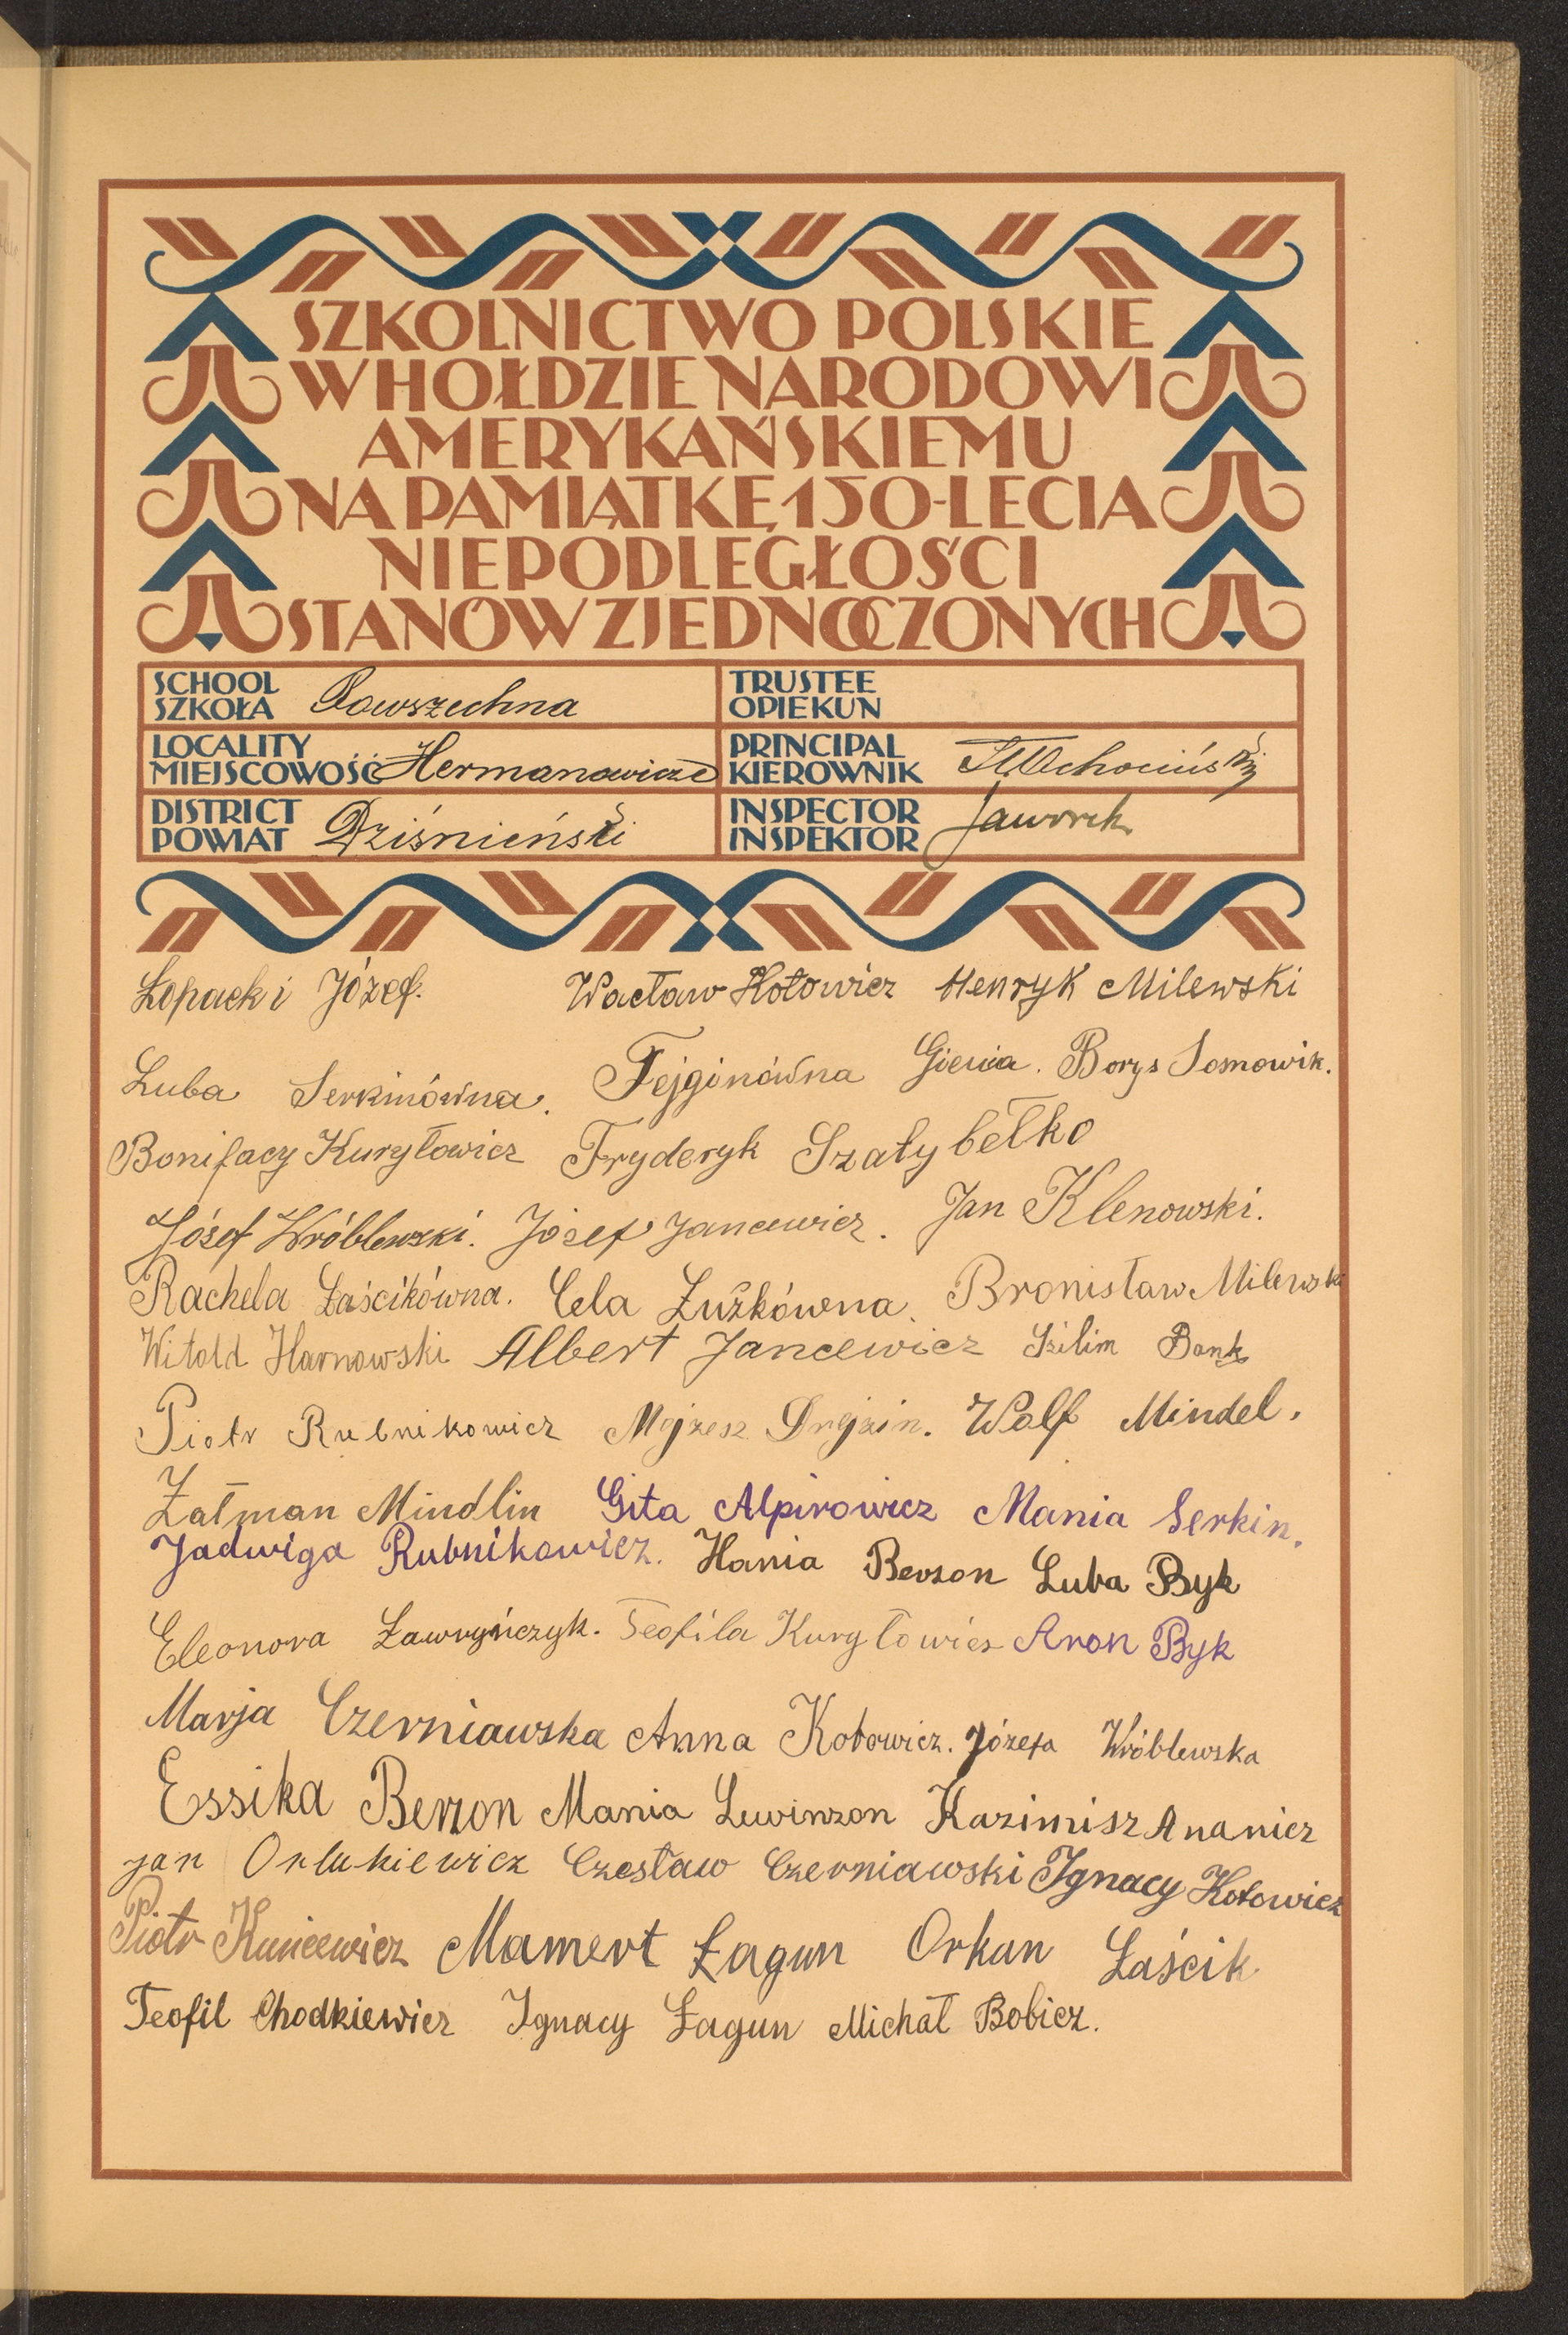 SZKOLNICTWO POLSKIE
W HOŁDZIE NARODOWI
AMERYKAŃSKIEMU
NA PAMIĄTKĘ 150-LECIA
NIEPODLEGŁOŚCI
STANÓW ZJEDNOCZONYCH
SCHOOL SZKOŁA Powszechna
TRUSTEE OPIEKUN
LOCALITY MIEJSCOWOŚĆ Hermanowicze
PRINCIPAL KIEROWNIK
DISTRICT POWIAT Dziśnieński
INSPECTOR INSPEKTOR Jaworek
Łopacki Józef. Wacław Kotowicz Henryk Milewski
Luba Serkinówna. Fejginówna Gienia. Borys Somowik.
Bonifacy Kuryłowicz Fryderyk Szałybełko
Józef Wróblewski. Józef Jancewicz. Jan Klenowski.
Rachela Łaścikówna. Cela Żużkówna. Bronisław Milewski
Witold Harnowski Albert Jancewicz Szlim Bank
Piotr Rubnikowicz Mojżesz Drejzin. Wolf Mindel.
Załman Mindlin Gita Alpirowicz Mania Serkin.
Jadwiga Rubnikowicz. Hania Berson Luba Byk
Eleonora Ławryńczyk. Teofila Kuryłowicz Aron Byk
Marja Czerniawska Anna Kotowicz. Józefa Wróblewska
Essika Berzon Mania Lewinzon Kazimisz Ananicz
Jan Orlukiewicz Czesław Czerniawski Ignacy Kotowicz
Piotr Kuncewicz Mamert Łagun Orkun Łaścik
Teofil Chodkiewicz Ignacy Łagun Michał Bobicz.